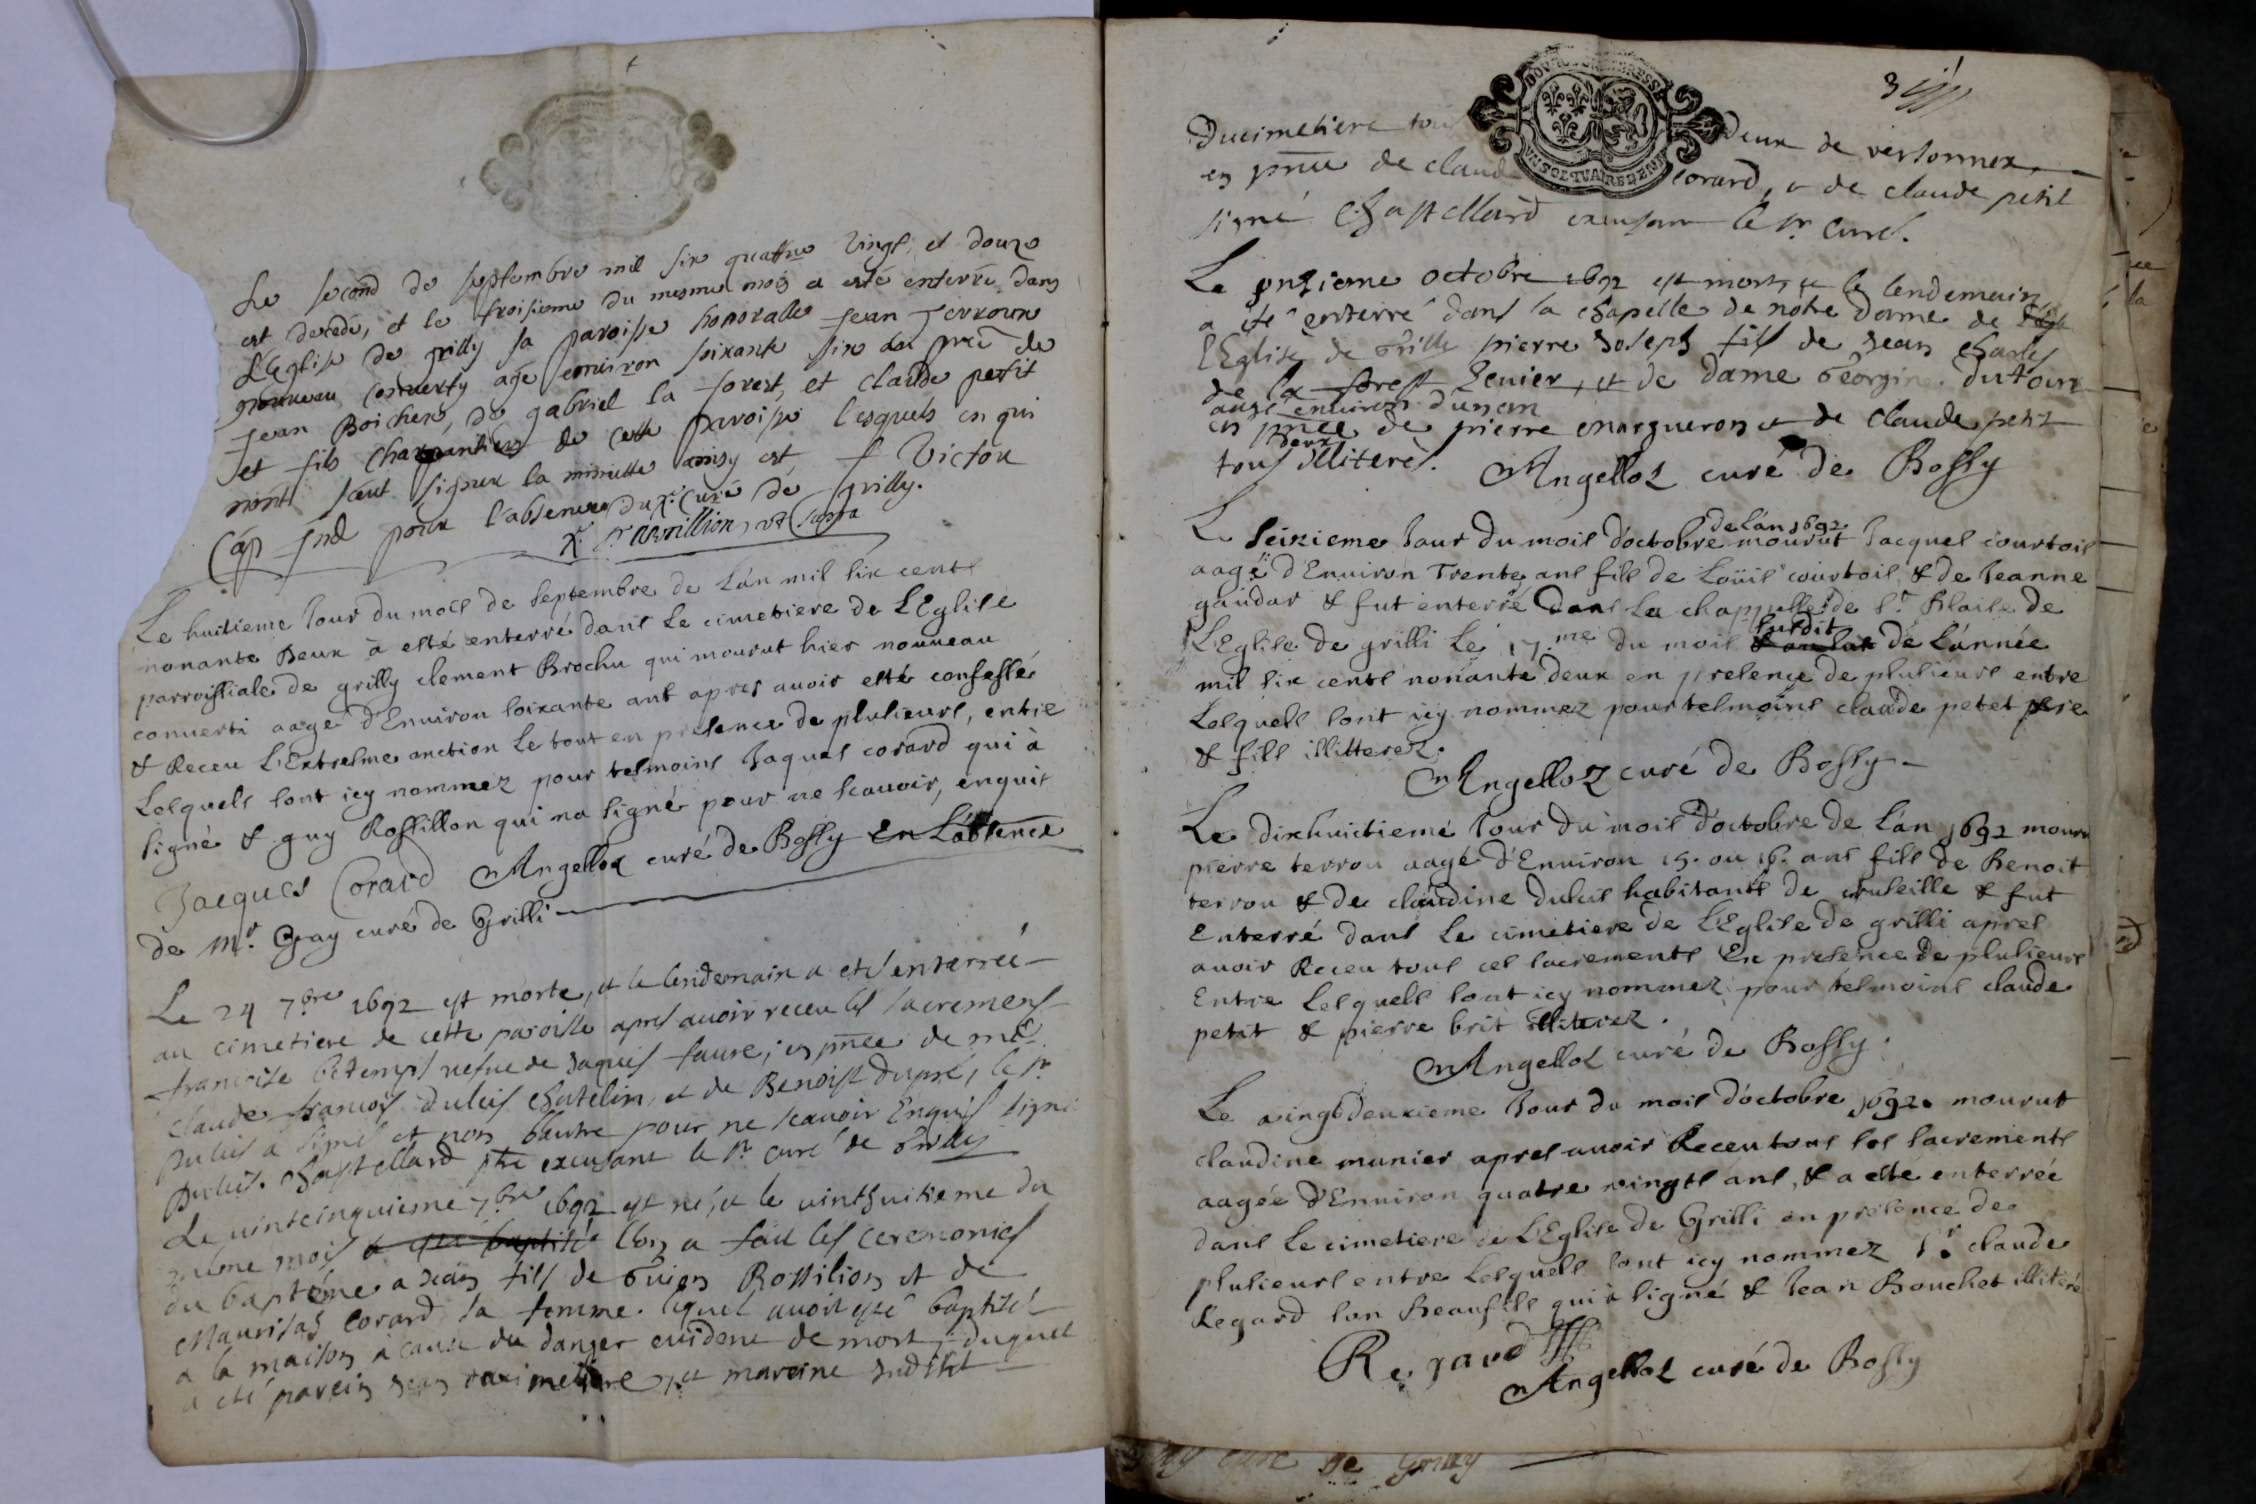 Le second de septembre mil six quattre vingt, et douze
est decedé, et le troisieme du mesme mois a esté enterré dans
L'Eglise de grilly sa paroisse honorable Jean Terroux
nouveau converty agé environ soixante six ans
Jean Boicher, de gabriel la forest, et claude petit
et fils charpantiers de cette paroisse lesquels en qui
n'ont sceut signer la minutte ainsy est, f Victor
Cap ind pour l'absence du R. Curé de grilly.
Le huitieme Jour du mois de septembre de L'an mil six cents
nonante Deux à esté enterré dans Le cimetiere de L'Eglise
parroissiale de grilly clement Brochu qui mourut hier nouveau
converti aagé d'Environ soixante ans apres avoir esté confessé
& Receu L'Extresme onction Le tout en presence de plusieurs, entre
Lesquels sont icy nommez pour tesmoins Jaques corard qui à
signé & guy Rossillon qui na signé pour ne scavoir, enquis
Jacques Corard Angelloz curé de Bossy En L'absence
de Mr. Gay curé de Grilli
Le 24 7bre 1692 est morte, et le lendemain a eté enterrée
au cimetiere de cette paroisse apres avoir receu les sacremens
francoise betemps vefve de Jaques faure, en pnce de me.
claude francois duluis chatelin, et de Benoist dupré, le sr
duluis a signé et non l'autre pour ne scavoir Enquis signé
Duluis. Chastellard ptre excusant le sr curé de Grilly
Le vintcinquieme 7bre 1692 est né, et le vinthuitieme du
même mois a eté baptisé l'on a fait les ceremonies
du baptéme a Jean fils de Guion Rossilion et de
Maurisaz Corard sa femme. lequel avoit eté baptisé
a la maison a cause du danger evident de mort, duquel
a eté parein Jean ducimetiere, et mareine Judith
3
Ducimetiere tous Deux de versonnex
en pnce de claude corard, et de claude petit
signé Chastellard excusant le sr Curé.
Le onzieme octobre 1692 est mort, et le lendemain
a été enterré dans la chapelle de nôtre Dame de
l'Eglise de Grilly pierre Joseph fils de Jean Charles
de la forest Zenier, et de dame Georgine. Dutour
aagé environ d'un an
en pnce de pierre marqueron et de Claude petit
tous deux illiterés. Angelloz curé de Bossy
Le seizieme Jour du mois d'octobre de L'an 1692 mourut Jacques courtois
aagé d'Environ Trente ans fils de Loüis courtois & de Jeanne
gaudar & fut enterré Dans La chappelle de St. Blaise de
L'Eglise de grilli Le 17.me du mois susdit de L'année
mil six cents nonante deux en presence de plusieurs entre
Lesquels sont icy nommez pour tesmoins claude petet pere
& fils illitterez.
Angelloz curé de Bossy
Le dixhuictieme Jour du mois d'octobre de L'an 1692 mouru
pierre terrou aagé d'Environ 15. ou 16. ans fils de Benoit
terrou & de claudine duluis habitants de & fut
Enterré dans Le cimetiere de L'Eglise de grilli apres
avoir Receu tous ces sacrements En presence de plusieurs
Entre Lesquels sont icy nommez pour tesmoins claude
petit & pierre brit illiterez.
Angelloz curé de Bossy.
Le vingtdeuxieme Jour du mois d'octobre 1692. mourut
claudine munier apres avoir Receu tous les sacrements
aagée d'Environ quatre vingts ans, & a esté enterrée
dans Le cimetiere de L'Eglise de Grilli en presence de
plusieurs entre Lesquels sont icy nommez Sr. claude
Regard son Beaufils qui à signé & Jean Bouchet illiteré
Regard
Angelloz curé de Bossy
curé de Grilly